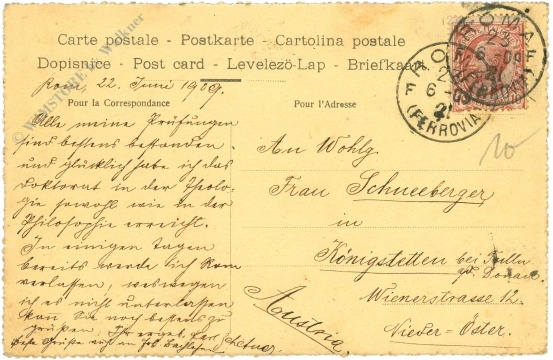 Carte postale - Postkarte - Cartolina postale
Dopisnice - Post card - Levelező-Lap - Briefkaart
Rom, 22. Juni 1909.
Pour la Correspondance
Pour l'Adresse
ROMA
23
6-09
ROMA
(FERROVIA)
10
Alle meine Prüfungen
sind bestens bestanden
und glücklich habe ich das
Doktorat in der Theolo-
gie sowohl wie in der
Philosophie erreicht.
In einigen Tagen
bereits werde ich Rom
verlassen, weswegen
ich es nicht unterlassen
kann Sie noch bestens zu
grüßen. Ihr ergeb.
Beste Grüße auch an
An Wohlg.
Frau Schneeberger
in
Königstetten bei Tulln
a/d. Donau.
Wienerstrasse 12.
Nieder-Öster.
Austria.
© WMSTORE W. Walkner